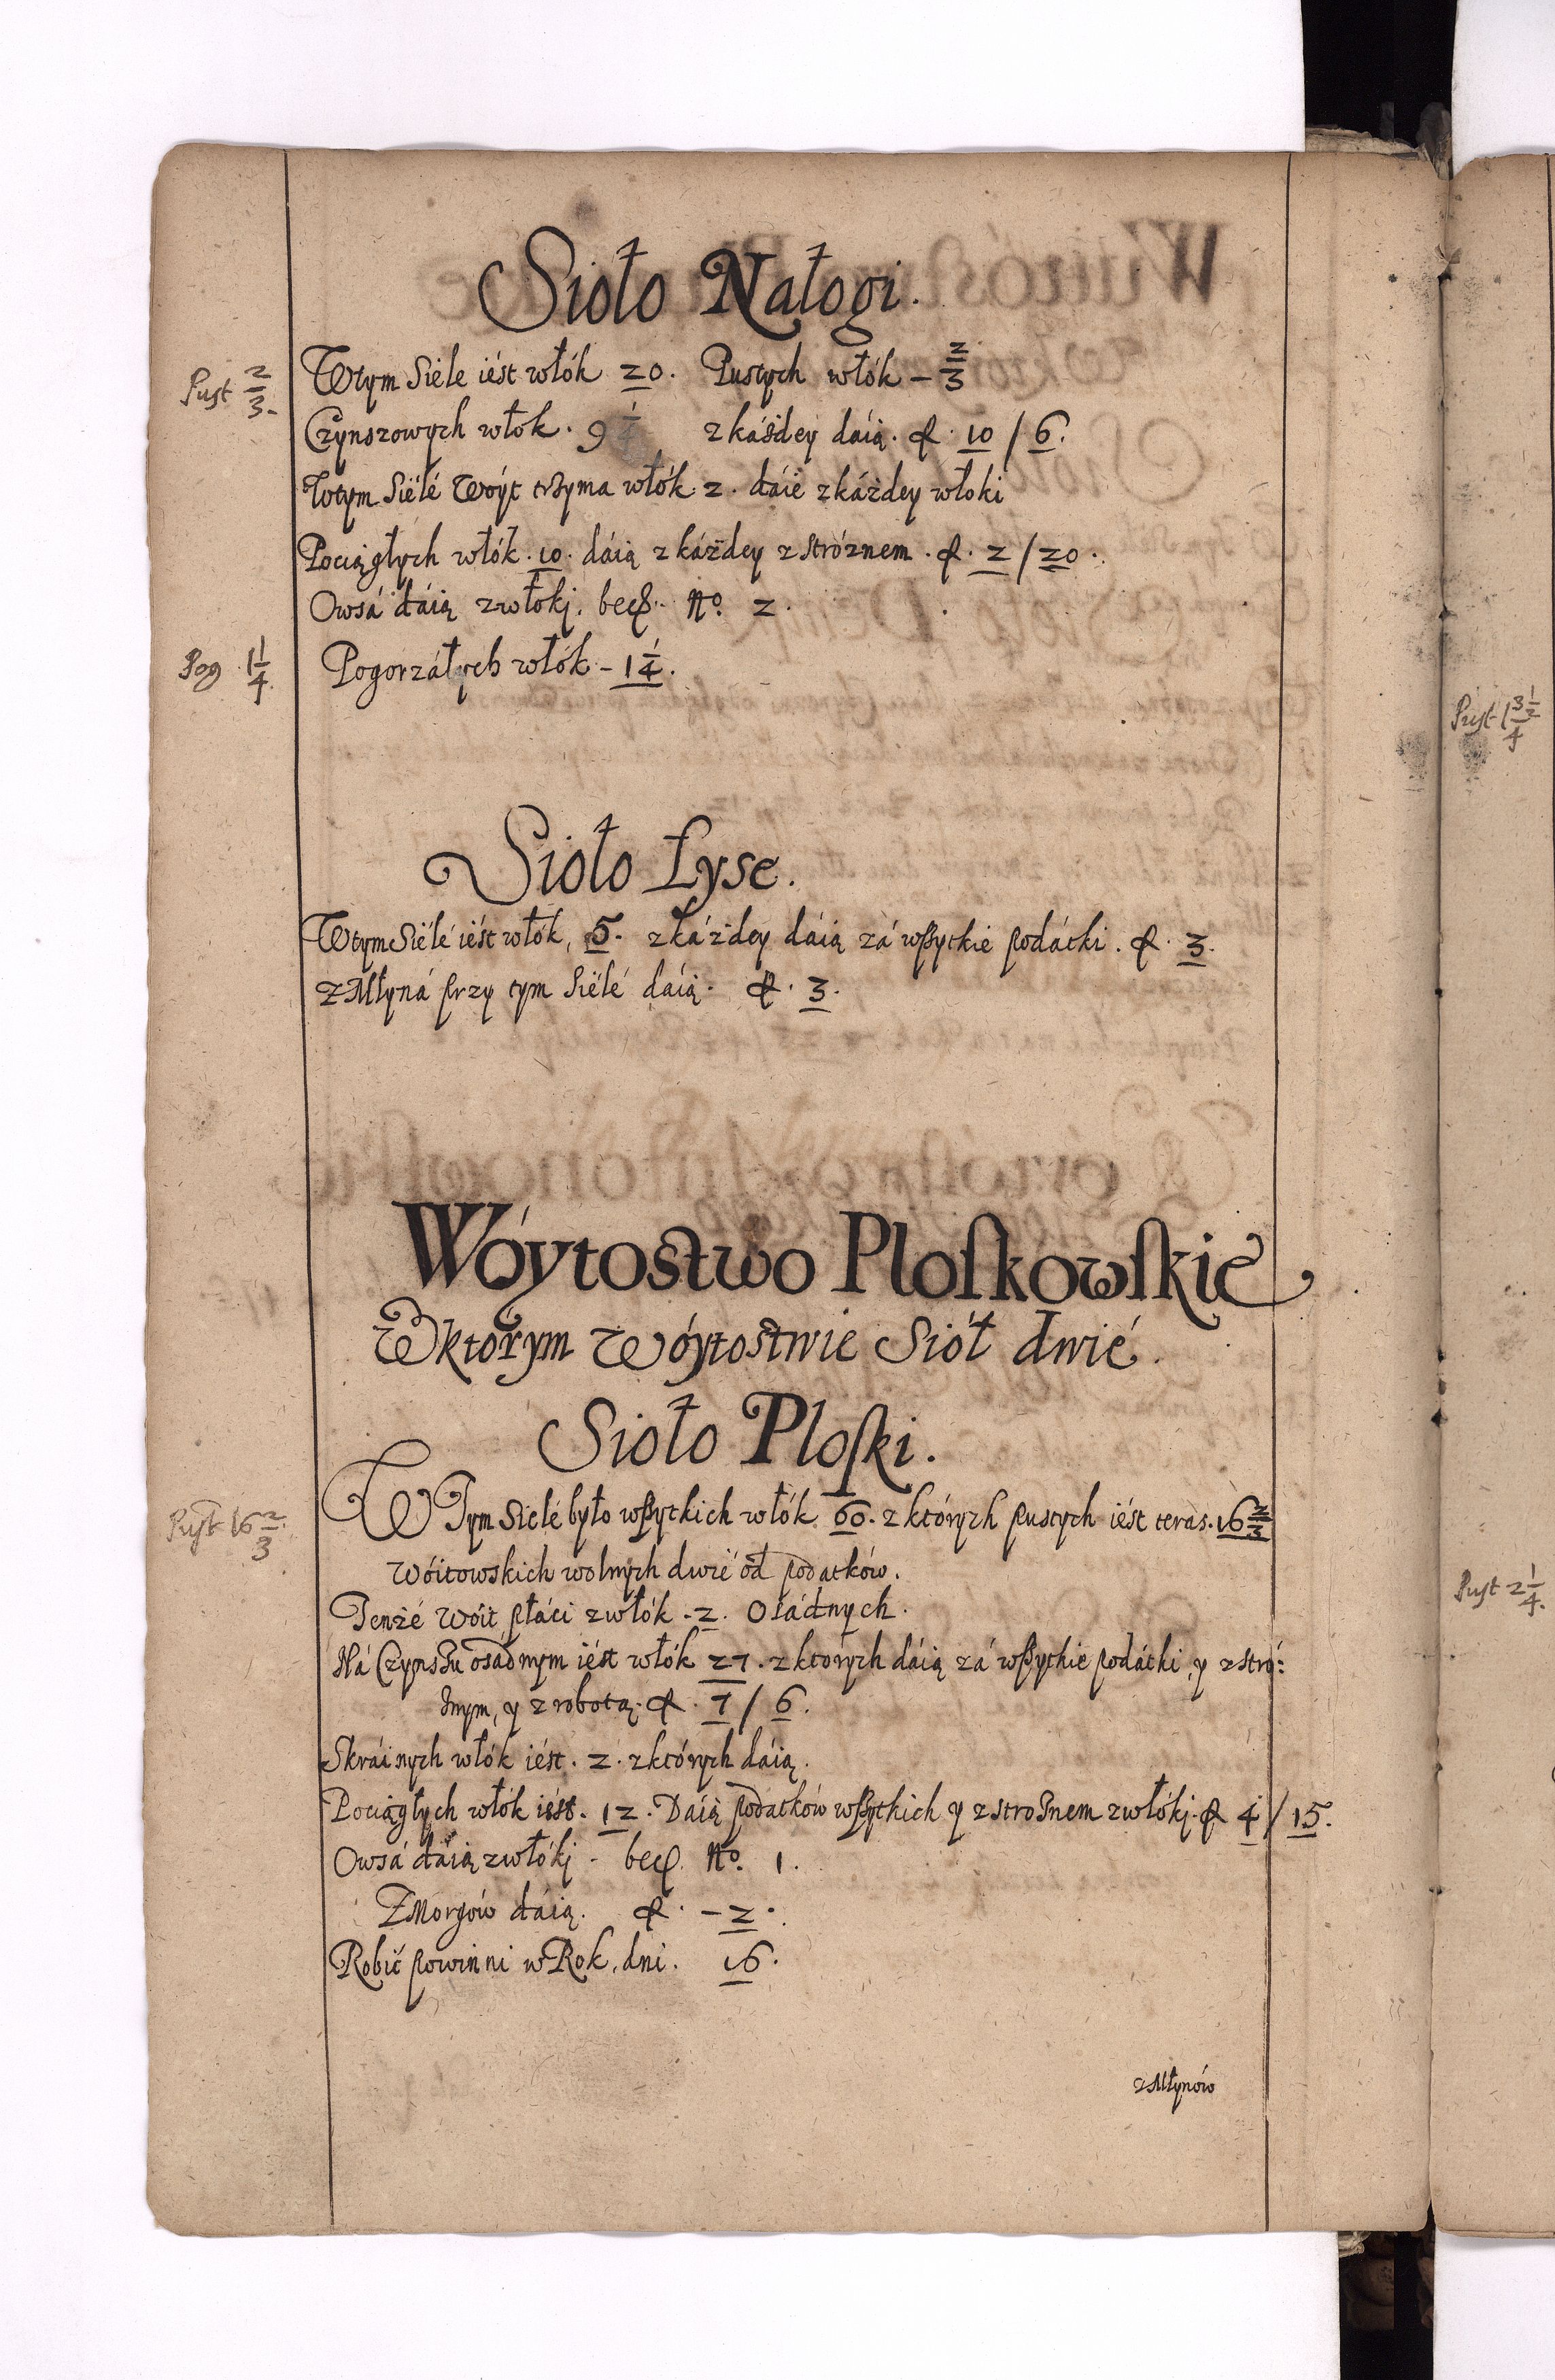 Sioło Nałogi.
Pust 2/3.
Wtym Siele iést włók 20. Pustych włók – 2/3
Czynszowych włok. 9 1/4 z káżdey dáią. 10 / 6.
Wtym Siëlé Wóyt trzyma włók. 2. dáië z káżdey włoki
Pociągłych włók. 10. dáią z káżdey z stróznem. 2 / 20.
Owsá dáią zwłokj. becz. No. 2.
Pog 1 1/4.
Pogorzáłych włók – 1 1/4.
Sioło Łyse.
Wtym Siëlé iést włók, 5. z káżdey dáią zá wßytkie podátki. 3.
Z Młyná przy tym Siëlé dáią. 3.
Wóytostwo Ploſkowſkie
W ktorym Wóytostwie Siół dwié.
Sioło Ploſki.
Pust 16 2/3
W Tym Sielé było wßytkich włók 60. z których pustych iést teras. 16 2/3
Wóitowskich wolnych dwié od podatków.
Tenżé Wóit płáci zwłók. 2. Osádnych.
Ná Czynßu osádnym iést włók 27. z których dáią zá wßytkie podátki, y z stró:
żnym, y z robotą. 7 / 6.
Skráinych włók iést. 2. z których dáią.
Pociągłych włók iést. 12. Dáią podatków wßytkich y z strożnem zwłókj. 4 / 15.
Owsá dáią zwłókj. becz. No. 1.
Z Morgów dáią. – 2.
Robić powinni w Rok, dni. 16.
z Młynów
Pust 1
Pust 2 1/4.